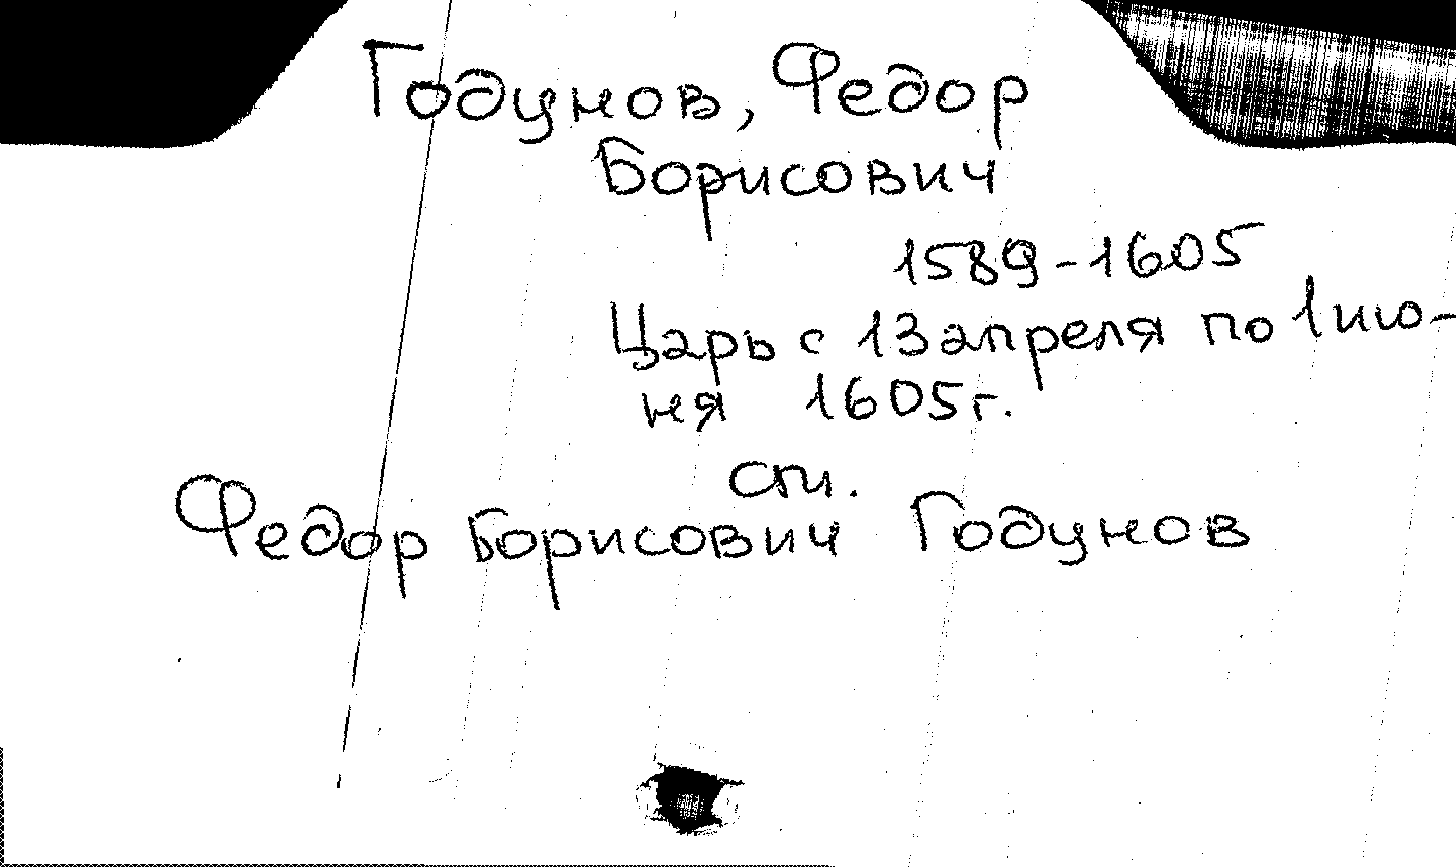 Годунов, Федор
Борисович
1589-1605
Царь с 13 апреля по 1 ию-
ня 1605 г.
см.
Федор Борисович Годунов